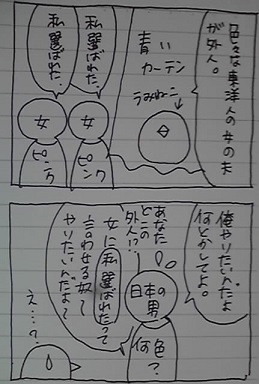 色々な東洋人の女の夫
が外人。
青い
カーテン
うみねこ
私選ばれた…
私選ばれた…
女
女
ピンク
ピンク
俺やりたいんだよ
何とかしてよ。
日本の
男
何色?
あなた
どこの
外人!?
女に私選ばれたって
言わせる奴〜
やりたいんだよ〜
え…?